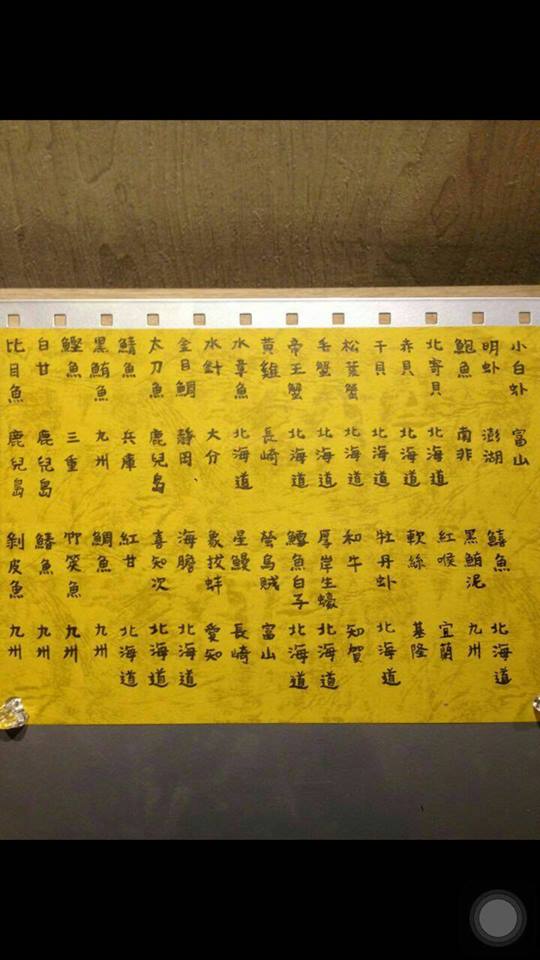 小白虾 富山
明虾 澎湖
鮑魚 南非
北寄貝 北海道
赤貝 北海道
干貝 北海道
松葉蟹 北海道
毛蟹 北海道
帝王蟹 北海道
黃雞 長崎
水章魚 北海道
水針 大分
金目鯛 靜岡
太刀魚 鹿兒島
鯖魚 兵庫
黑鮪魚 九州
鰹魚 三重
白甘 鹿兒島
比目魚 鹿兒島
鱚魚 北海道
黑鮪泥 九州
紅喉 宜蘭
軟絲 基隆
牡丹虾 北海道
和牛 知賀
厚岸生蠔 北海道
鱈魚白子 北海道
螢烏賊 富山
星鰻 長崎
象拔蚌 愛知
海膽 北海道
喜知次 北海道
紅甘 北海道
鯛魚 九州
竹筴魚 九州
鰆魚 九州
剝皮魚 九州